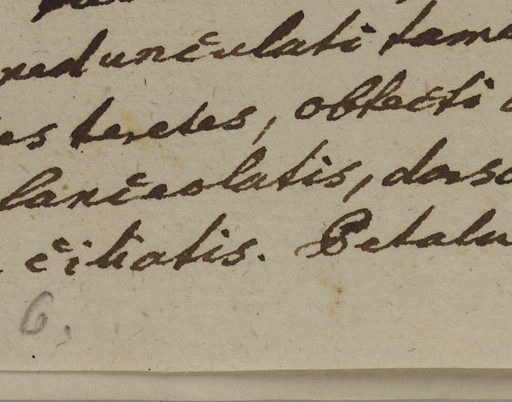 pedunculati tame
es teretes, obtecti
lanceolatis, dorso
ciliatis. Petalu
6.